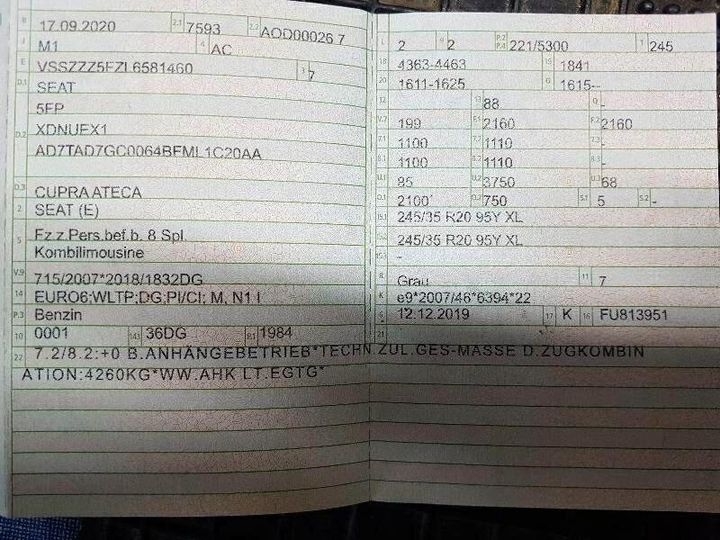 B 17.09.2020 2.1 7593 2.2 AOD00026 7
J M1 4 AC
E VSSZZZ5FZL6581460 3 7
D.1 SEAT
5FP
D.2 XDNUEX1
AD7TAD7GC0064BFML1C20AA
D.3 CUPRA ATECA
2 SEAT (E)
5 Fz.z.Pers.bef.b. 8 Spl.
Kombilimousine
V.9 715/2007*2018/1832DG
14 EURO6;WLTP;DG;PI/CI; M, N1 I
P.3 Benzin
10 0001 14.1 36DG P.1 1984
L 2 9 2 P.2 P.4 221/5300 T 245
18 4363-4463 19 1841
20 1611-1625 G 1615--
12 - 13 88 Q -
V.7 199 F.1 2160 F.2 2160
7.1 1100 7.2 1110 7.3 -
8.1 1100 8.2 1110 8.3 -
U.1 85 U.2 3750 U.3 68
O.1 2100 O.2 750 S.1 5 S.2 -
15.1 245/35 R20 95Y XL
15.2 245/35 R20 95Y XL
15.3 -
R Grau 11 7
K e9*2007/46*6394*22
6 12.12.2019 17 K 16 FU813951
21
22 7.2/8.2:+0 B.ANHÄNGEBETRIEB*TECHN.ZUL.GES-MASSE D.ZUGKOMBIN
ATION:4260KG*WW.AHK LT.EGTG*